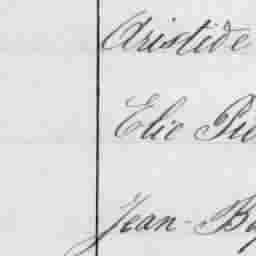 Aristide
Elie Pie
Jean-Ba